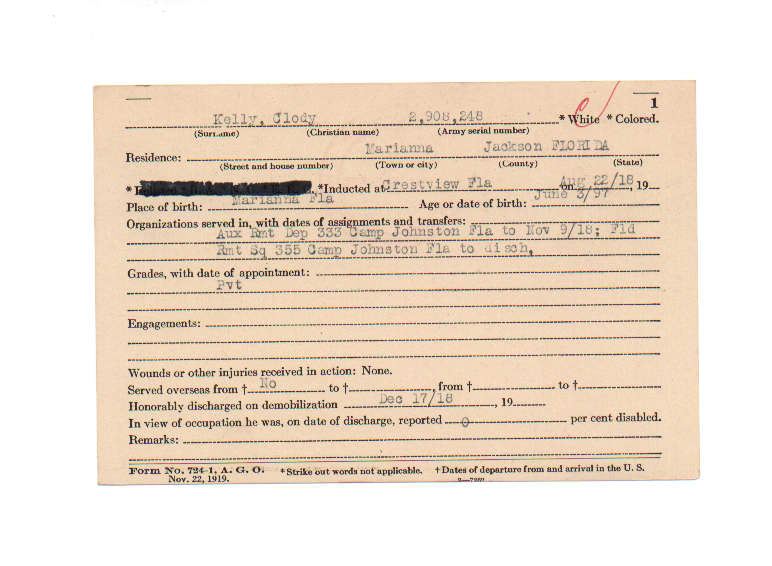 1
Kelly, Clody 2,908,248 *White *Colored.
(Surname) (Christian name) (Army serial number)
Residence: Marianna Jackson FLORIDA
(Street and house number) (Town or city) (County) (State)
* *Inducted at Crestview Fla on Aug 22/18, 19
Place of birth: Marianna Fla Age or date of birth: June 3/97
Organizations served in, with dates of assignments and transfers:
Aux Rmt Dep 333 Camp Johnston Fla to Nov 9/18; Fld
Rmt Sq 355 Camp Johnston Fla to disch,
Grades, with date of appointment:
Pvt
Engagements:
Wounds or other injuries received in action: None.
Served overseas from † No to †, from † to †
Honorably discharged on demobilization Dec 17/18, 19
In view of occupation he was, on date of discharge, reported 0 per cent disabled.
Remarks:
Form No. 724-1, A. G. O. *Strike out words not applicable. †Dates of departure from and arrival in the U. S.
Nov. 22, 1919.